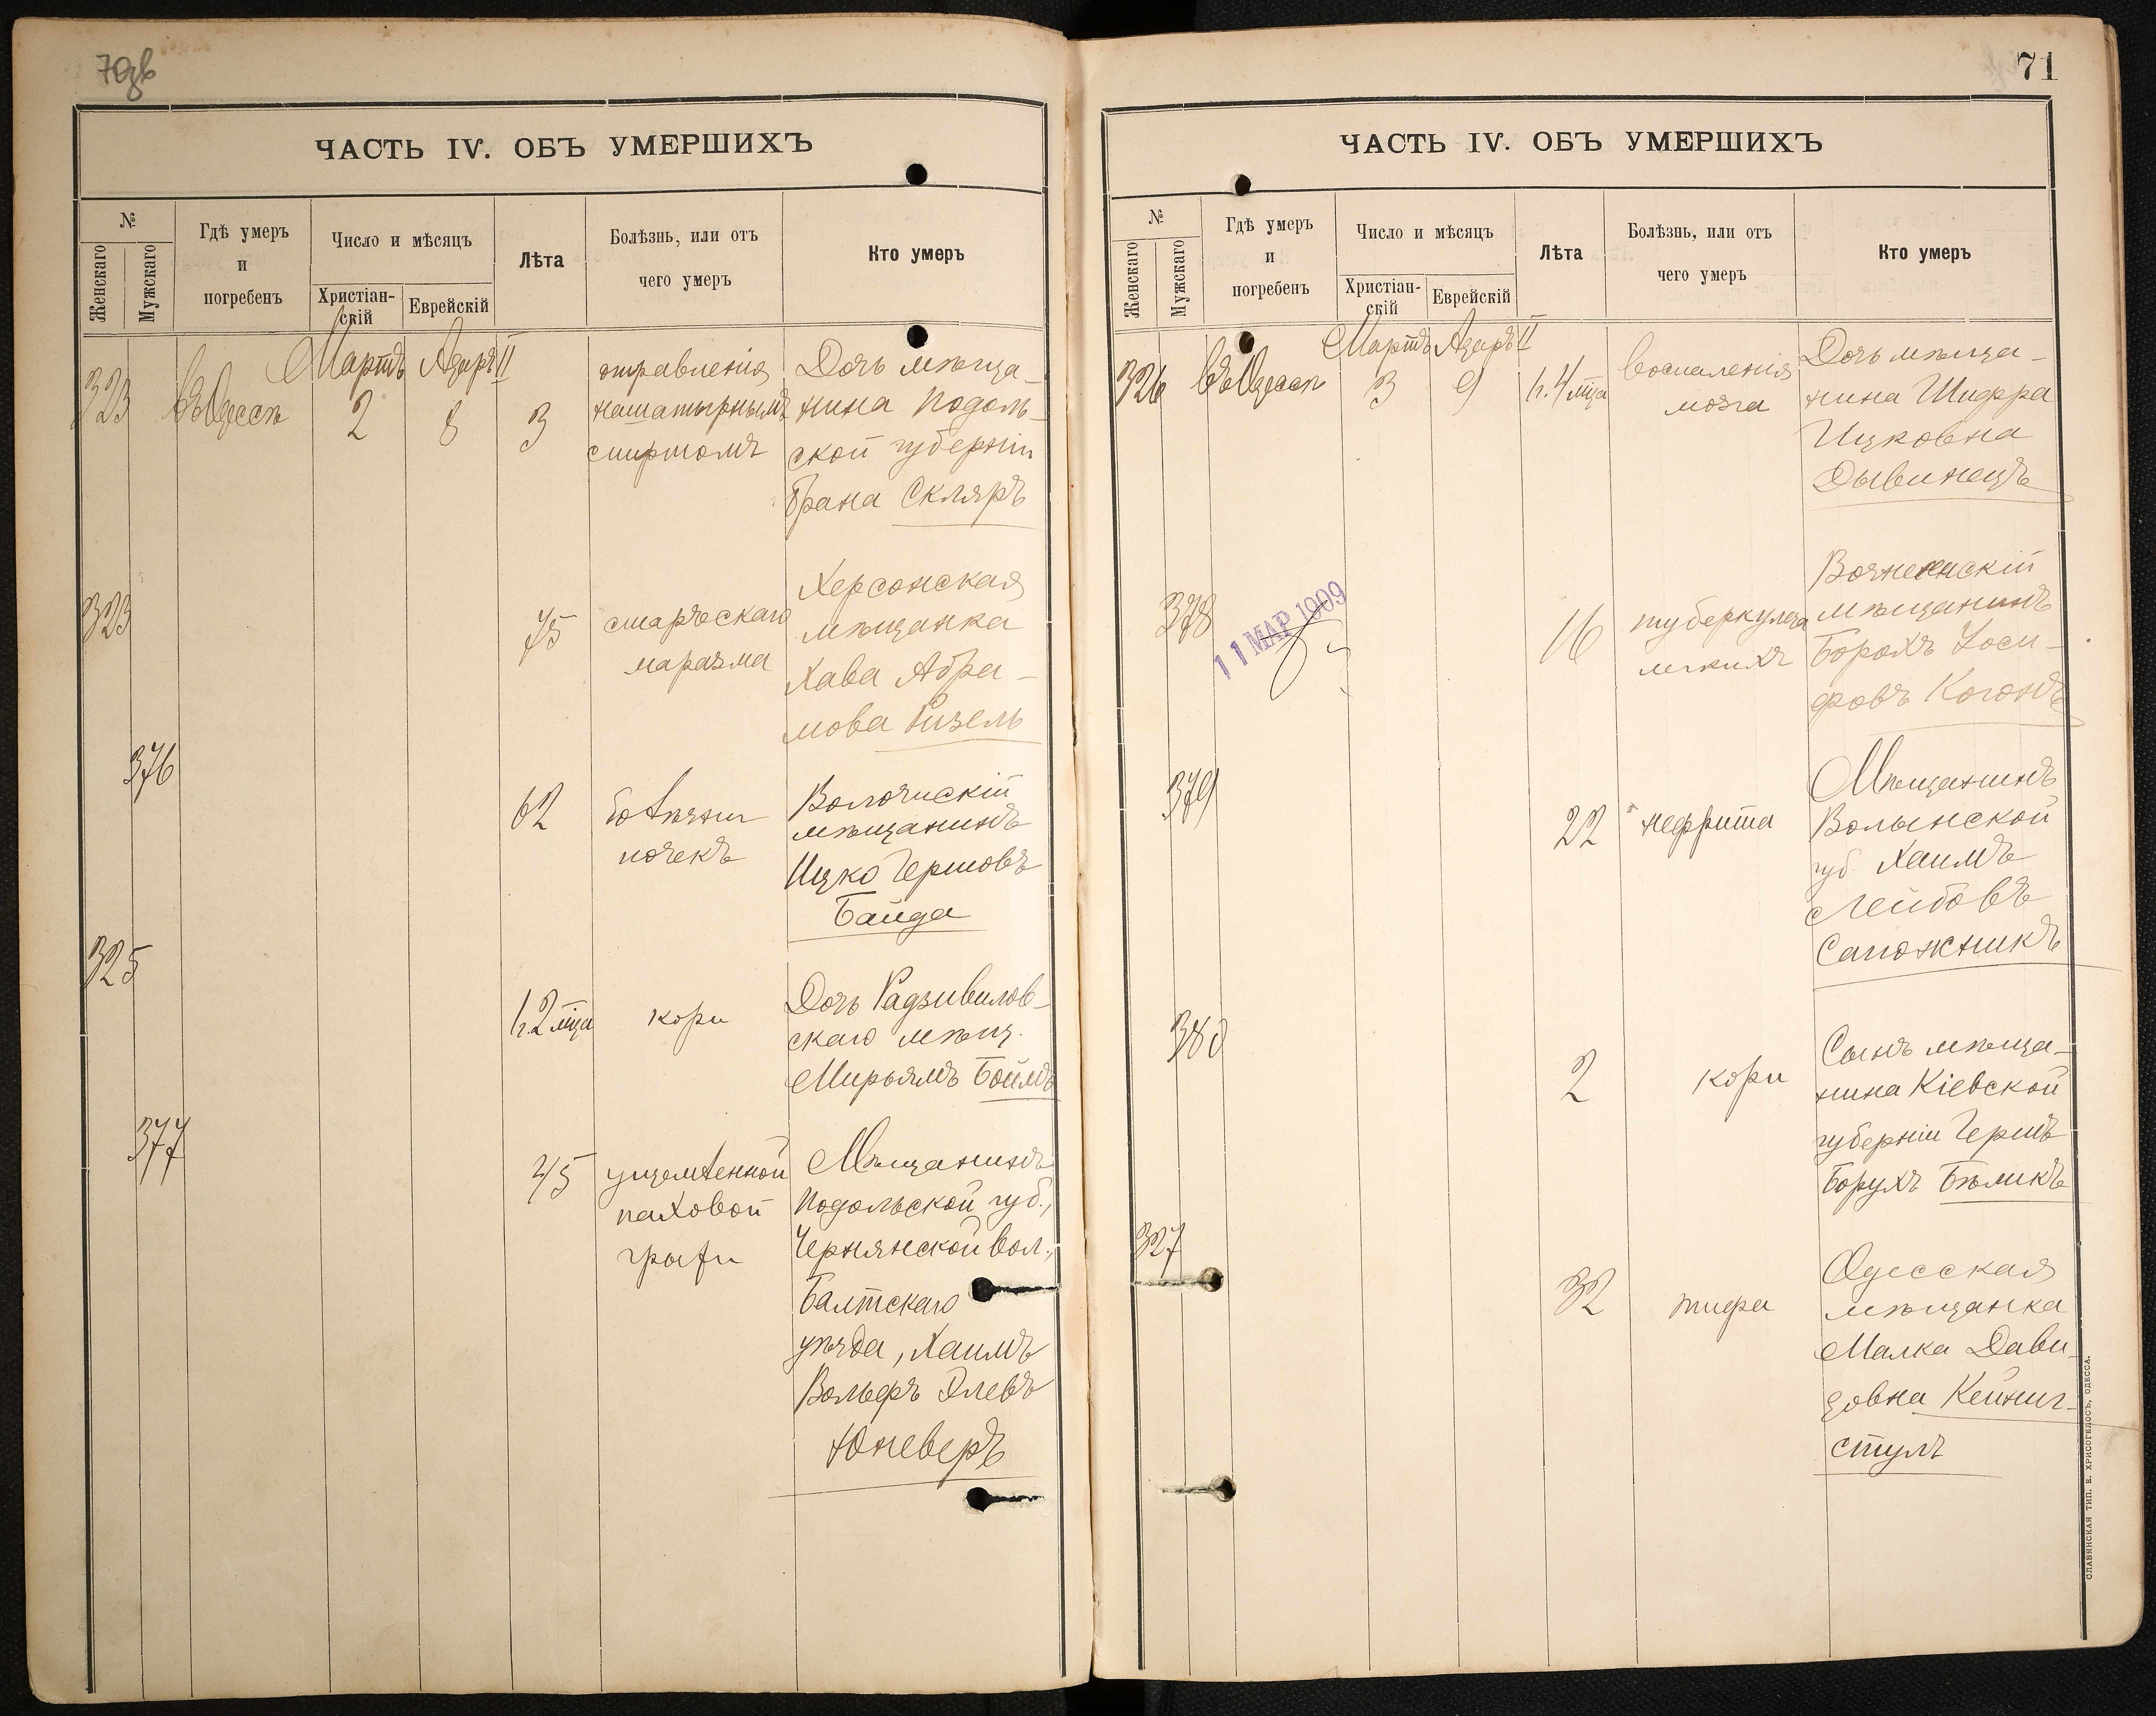 70об
ЧАСТЬ IV. ОБЪ УМЕРШИХЪ
№
Женскаго
Мужскаго
Гдѣ умеръ
и
погребенъ
Число и мѣсяцъ
Христіан-
скій
Еврейскій
Лѣта
Болѣзнь, или отъ
чего умеръ
Кто умеръ
Мартъ Адаръ II
323 въ Одессѣ 2 8 3
отравленія
нашатырнымъ
спиртомъ
Дочь мѣща-
нина Подоль-
ской губерніи
Брана Скляръ
323
75
старческаго
маразма
Херсонская
мѣщанка
Хава Абра-
мова Гизель
376
62
болѣзни
почекъ
Волочискій
мѣщанинъ
Ицко Гершовъ
Байда
325
1 г. 2 мца
кори
Дочь Радзивилов-
скаго мѣщ.
Мирьямъ Боймъ
377
45
ущемленной
паховой
грыжи
Мѣщанинъ
Подольской губ.,
Чернянской вол.,
Балтскаго
уѣзда, Хаимъ
Вольфъ Элевъ
Юневеръ
71
ЧАСТЬ IV. ОБЪ УМЕРШИХЪ
№
Женскаго
Мужскаго
Гдѣ умеръ
и
погребенъ
Число и мѣсяцъ
Христіан-
скій
Еврейскій
Лѣта
Болѣзнь, или отъ
чего умеръ
Кто умеръ
Мартъ Адаръ II
326 въ Одессѣ 3 9 1 г. 4 мца
воспаленія
мозга
Дочь мѣща-
нина Шифра
Ицковна
Дывинецъ
378
11 МАР 1909
16
туберкулеза
легкихъ
Вознесенскій
мѣщанинъ
Борохъ Іоси-
фовъ Когонъ
379
22
нефрита
Мѣщанинъ
Волынской
губ. Хаимъ
Лейбовъ
Сапожникъ
380
2
кори
Сынъ мѣща-
нина Кіевской
губерніи Гершъ
Борухъ Бѣликъ
327
32
тифа
Одесская
мѣщанка
Малка Дави-
довна Кейниг-
стулъ
СЛАВЯНСКАЯ ТИП. Е. ХРИСОГЕЛОСЪ, ОДЕССА.